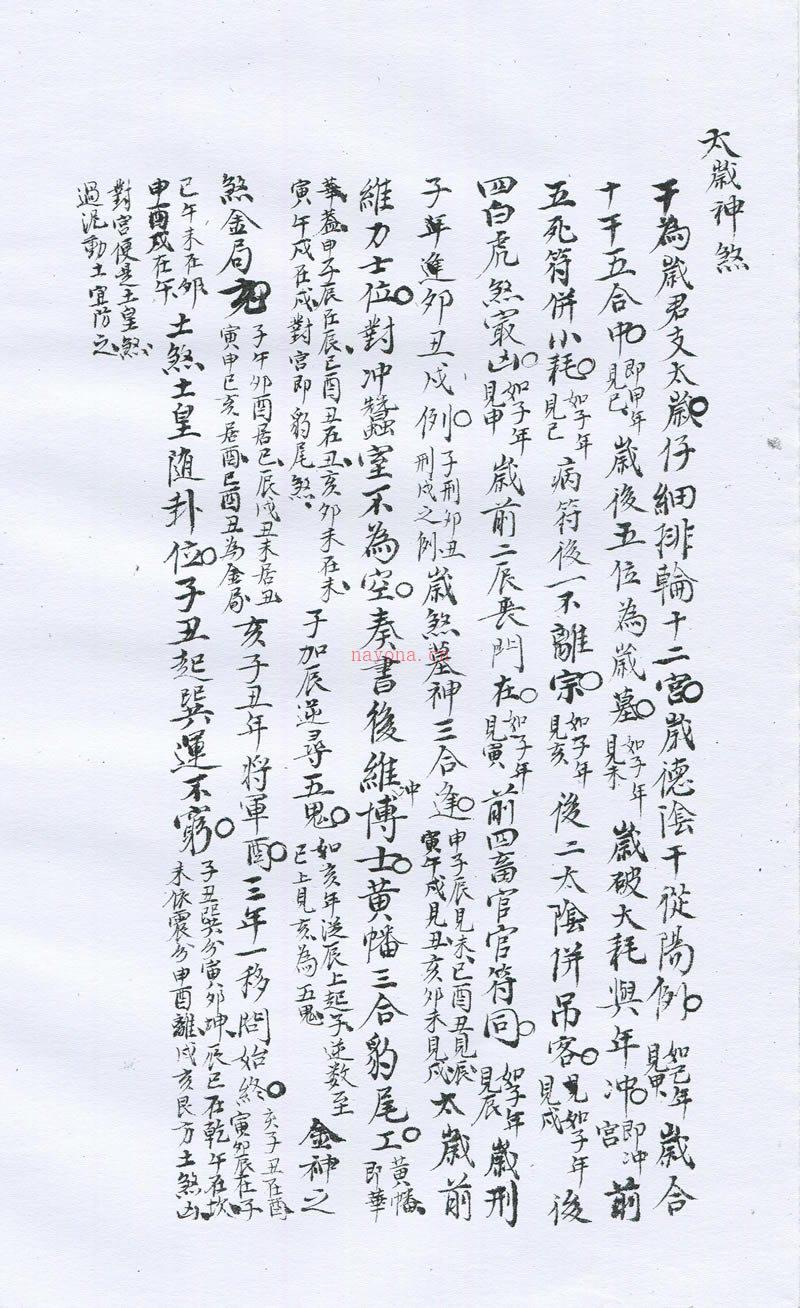 太歲神煞
干為歲君支太歲仔細排輪十二宮歲德陰干從陽例如己年見甲歲合
十干五合中即甲年見己歲後五位為歲墓如子年見未歲破大耗與年冲即冲宮前
五死符併小耗如子年見巳病符後一不離宗如子年見亥後二太陰併吊客如子年見戌後
四白虎煞最凶如子年見申歲前二辰喪門在如子年見寅前四畜官官符同如子年見辰歲刑
子年逢卯丑戌例子刑卯丑刑戌之例歲煞墓神三合逢申子辰見未巳酉丑見辰寅午戌見丑亥卯未見戌太歲前
維力士位對冲蠶室不為空奏書後維冲博士黃幡三合豹尾工黃幡即華
華蓋申子辰在辰巳酉丑在丑亥卯未在未寅午戌在戌對宮即豹尾煞子加辰逆尋五鬼如亥年從辰上起子逆数至巳上見亥為五鬼金神之
煞金局子午卯酉居巳辰戌丑未居丑寅申巳亥居酉巳酉丑為金局亥子丑年将軍酉三年一移問始終亥子丑在酉寅卯辰在子
巳午未在卯申酉戌在午土煞土皇随卦位子丑起巽運不窮子丑巽分寅卯坤辰巳在乾午在坎未依震分申酉離戌亥艮方土煞凶
對宮便是土皇煞
過泥動土宜防之
nayona.cn